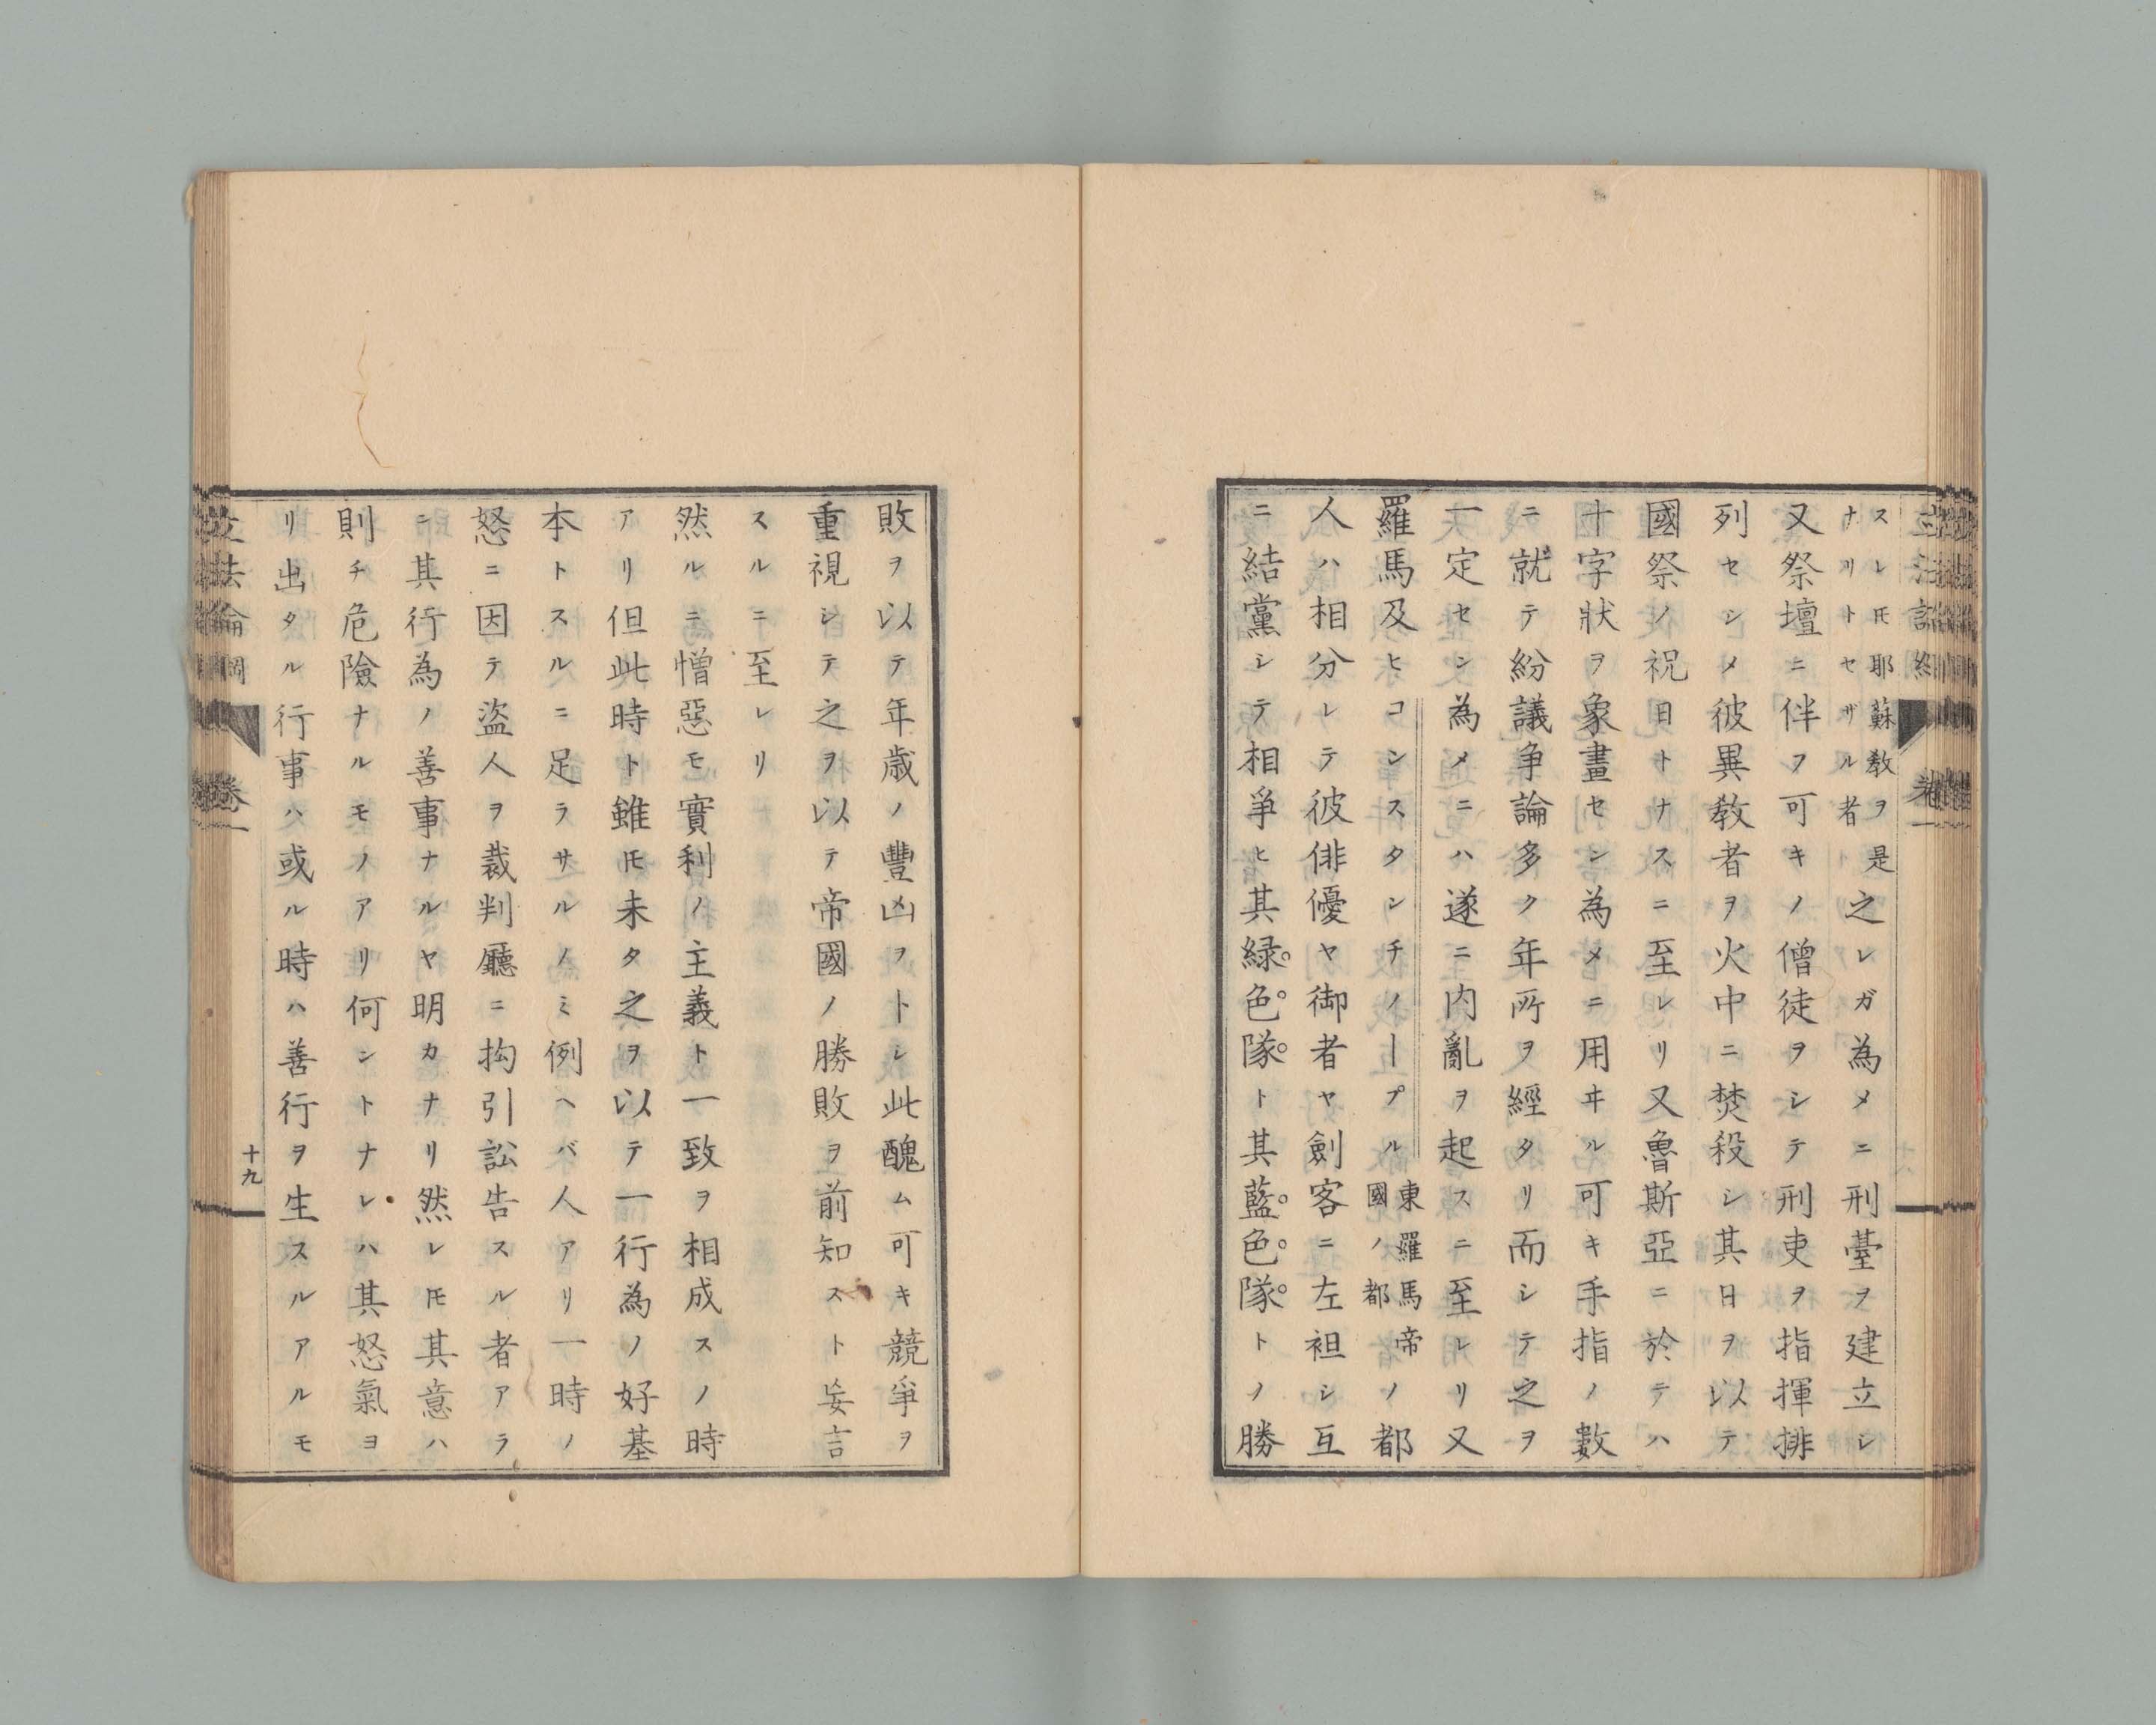 スレ𪜈耶蘇敎ヲ是
ナリトセザル者
之レガ為メニ刑臺ヲ建立シ
又祭壇ニ伴フ可キノ僧徒ヲシテ刑吏ヲ指揮排
列セシメ彼異敎者ヲ火中ニ焚殺シ其日ヲ以テ
國祭ノ祝日トナスニ至レリ又魯斯亞ニ於テハ
十字狀ヲ象畫セン為メニ用ヰル可キ手指ノ數
ニ就テ紛議爭論多ク年所ヲ經タリ而シテ之ヲ
一定セン為メニハ遂ニ内亂ヲ起スニ至レリ又
羅馬及ヒコンスタンチノープル
東羅馬帝
國ノ都
ノ都
人ハ相分レテ彼俳優ヤ御者ヤ劍客ニ左袒シ互
ニ結黨シテ相爭ヒ其緑色隊ト其藍色隊トノ勝
敗ヲ以テ年歳ノ豐凶ヲトシ此醜ム可キ競爭ヲ
重視シテ之ヲ以テ帝國ノ勝敗ヲ前知スト妄言
スルニ至レリ
然ルニ憎惡モ實利ノ主義ト一致ヲ相成スノ時
アリ但此時ト雖𪜈未タ之ヲ以テ一行為ノ好基
本トスルニ足ラサルノミ例ヘバ人アリ一時ノ
怒ニ因テ盜人ヲ裁判廳ニ拘引訟告スル者アラ
ン其行為ノ善事ナルヤ明カナリ然レ𪜈其意ハ
則チ危險ナルモノアリ何ントナレハ其怒氣ヨ
リ出タル行事ハ或ル時ハ善行ヲ生スルアルモ
立法論綱 卷一
十九